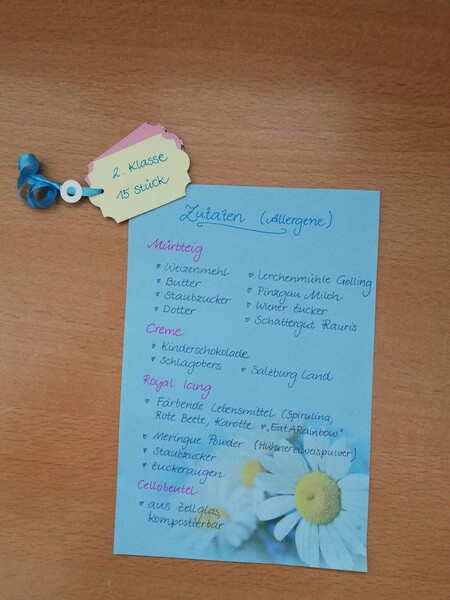 2. Klasse
15 Stück
Zutaten (Allergene)
Mürbteig
Weizenmehl
Butter
Staubzucker
Dotter
Lerchenmühle Golling
Pinzgau Milch
Wiener Zucker
Schattergut Rauris
Creme
Kinderschokolade
Schlagobers
Salzburg Land
Royal Icing
Färbende Lebensmittel (Spirulina,
Rote Beete, Karotte "EatARainbow"
Meringue Powder (Hühnereiweispulver)
Staubzucker
Zuckeraugen
Cellobeutel
aus Zellglas,
kompostierbar